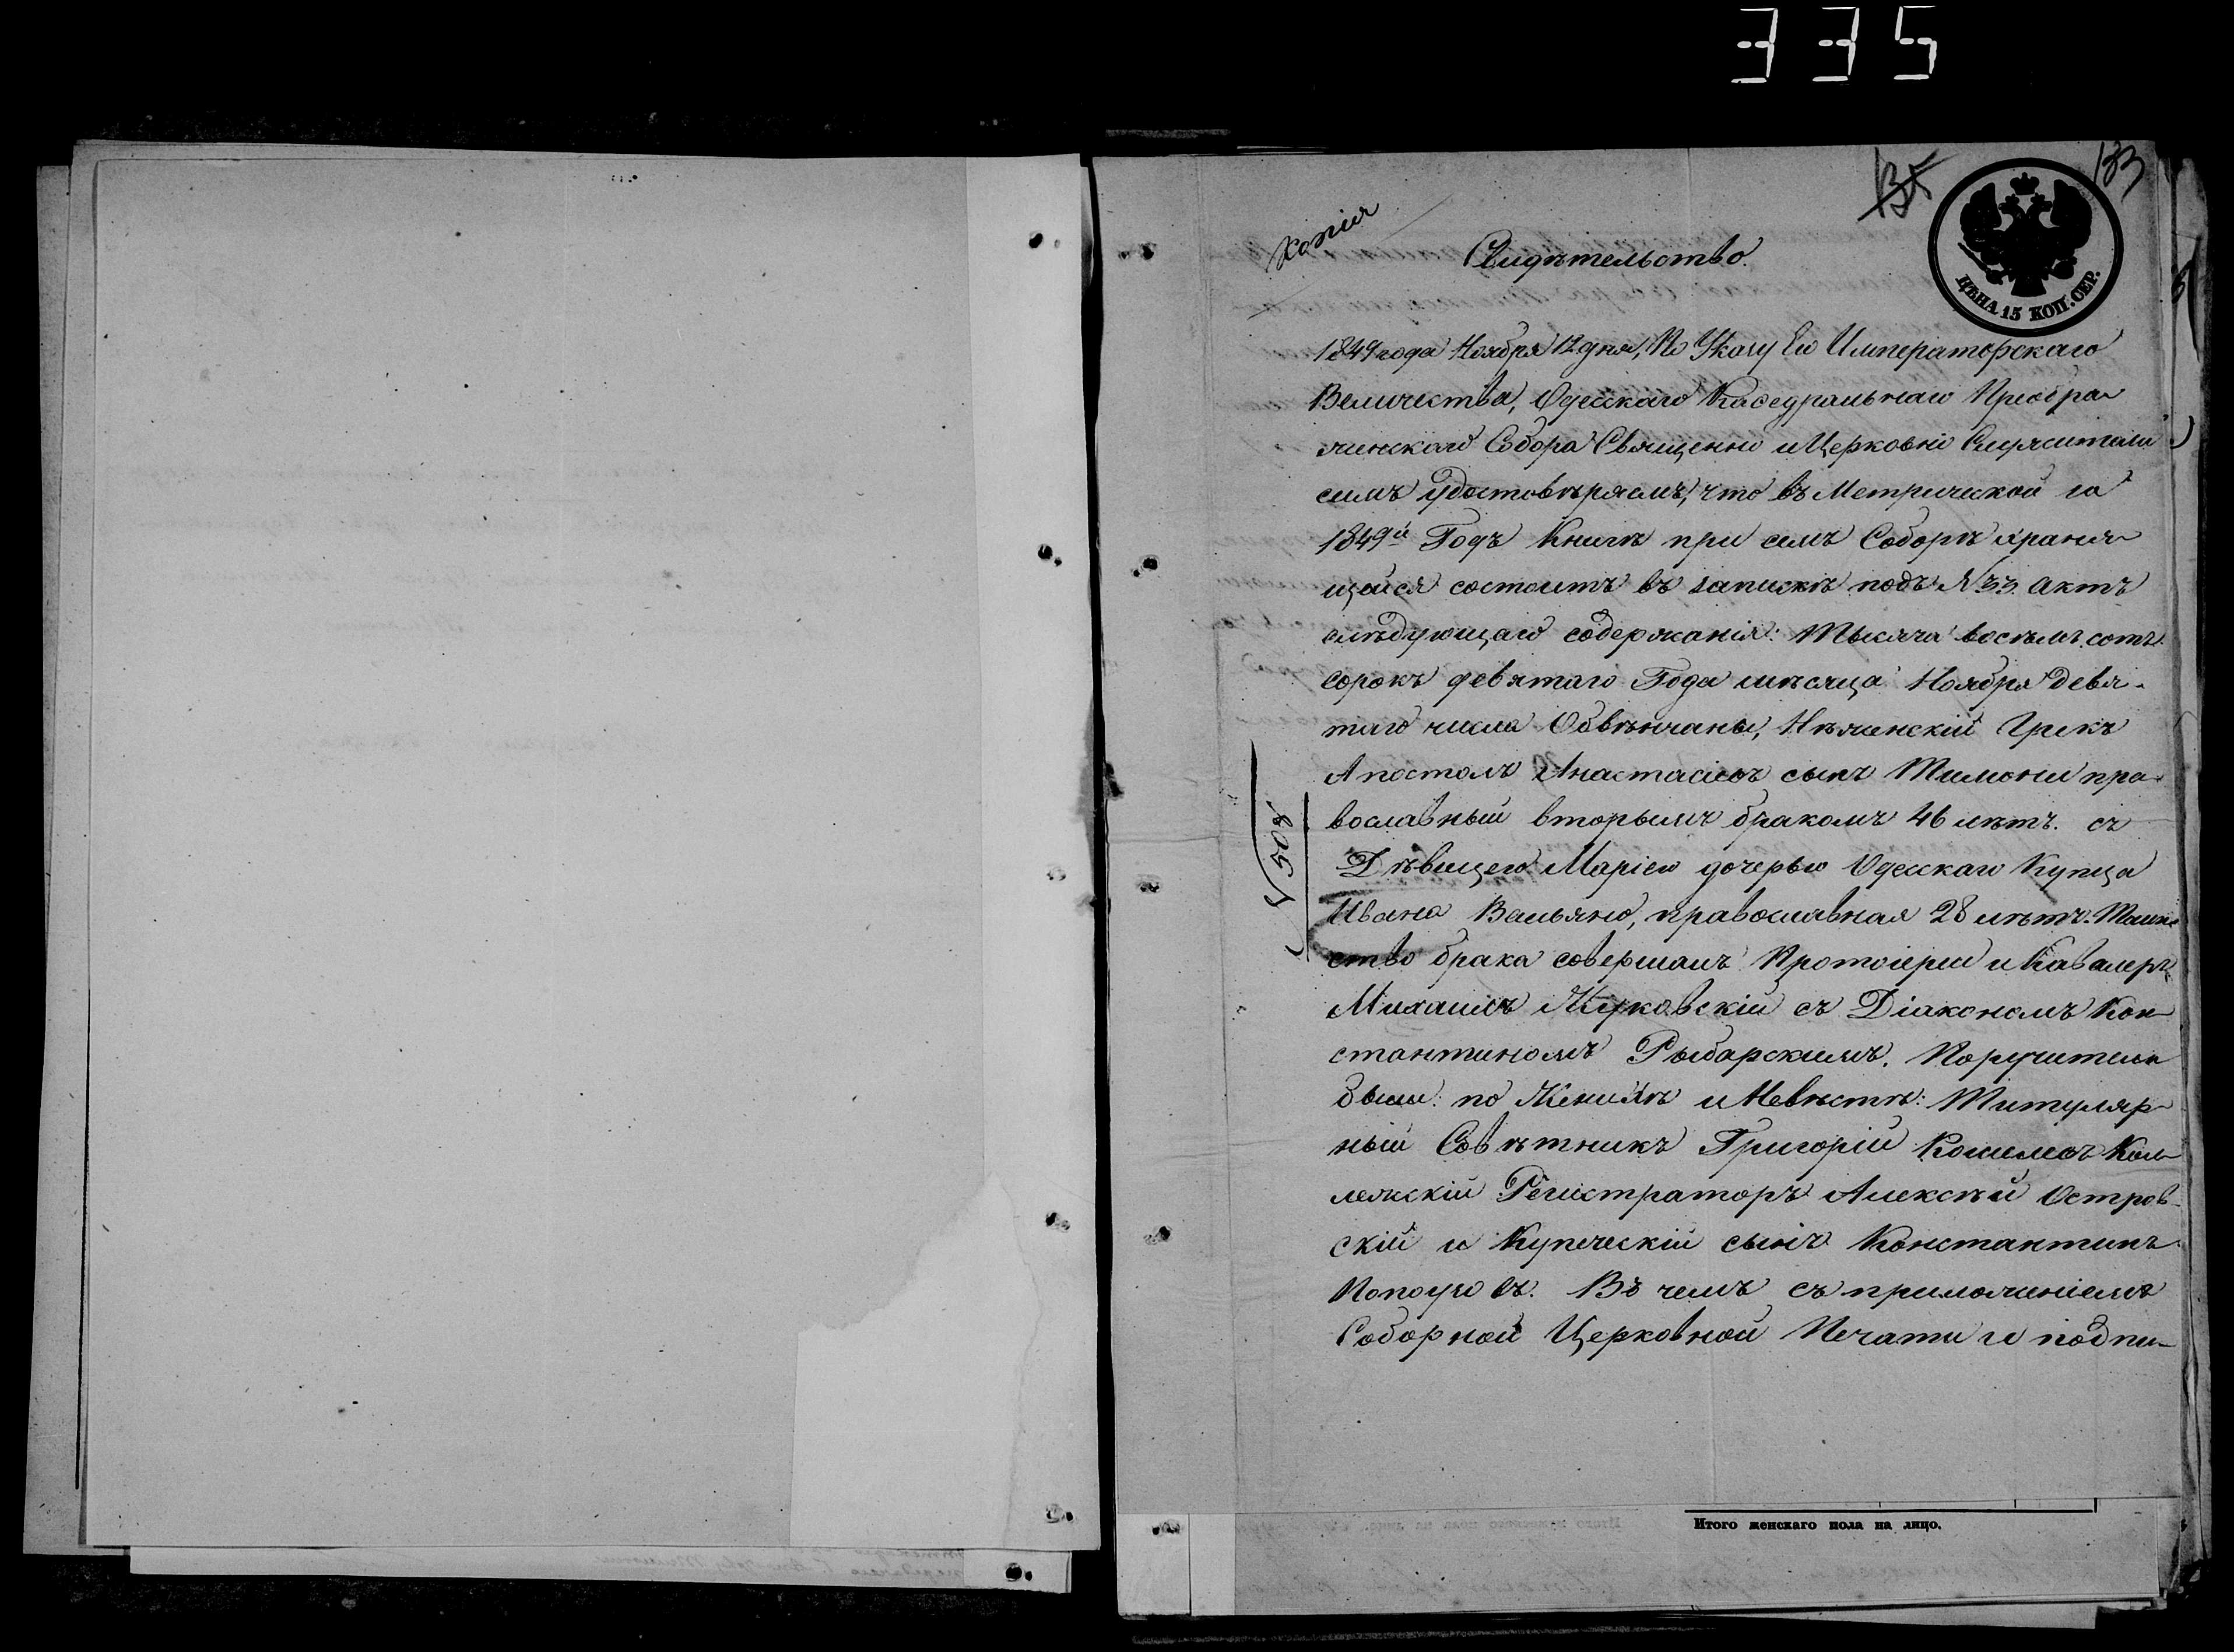 335
135
133
Копія
Свидѣтельство.
ЦѢНА 15 КОП. СЕР.
1849 года Ноября 12 дня, По Указу Его Императорскаго
Величества, Одесскаго Кафедральнаго Преобра
женскаго Собора Священно и Церковно Служители
симъ удостовѣряемъ, что въ Метрической за
1849й Годъ Книгѣ при семъ Соборѣ храня
щейся состоитъ въ запискѣ подъ № 33. актъ
слѣдующаго содержанія: Тысяча восемъ сотъ
сорокъ девятаго Года мѣсяца Ноября девя-
таго числа Обвѣнчаны, Нѣженскій Грекъ
Апостолъ Анастасіевъ сынъ Тимони пра-
вославный вторымъ бракомъ 46 лѣтъ. съ
Дѣвицею Маріею дочерью Одесскаго Купца
Ивана Вальяно, православная 28 лѣтъ. Таин
ство брака совершалъ Протоіерей и Кавалеръ
Михаилъ Жуковскій съ Діакономъ Кон
стантиномъ Рыбарскимъ. Поручители
были: по Женихѣ и Невѣстѣ: Титуляр-
ный Совѣтникъ Григорій Кол-
лежскій Регистраторъ Алексѣй Остров-
скій и Купеческій сынъ Константинъ
Въ чемъ съ приложеніемъ
Соборной Церковной Печати и подпи-
508
Итого женскаго пола на лицо.